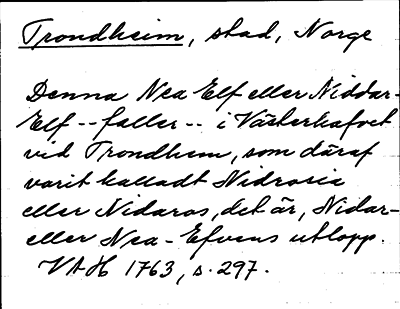 Trondheim, stad, Norge
Denna Nea Elf eller Niddar-
Elf -- faller -- i Västerhafvet
vid Trondhem, som däraf
varit kalladt Nidrosie
eller Nidaros, det är, Nidar-
eller Nea-Elfvens utlopp.
VAH 1763, s. 297.